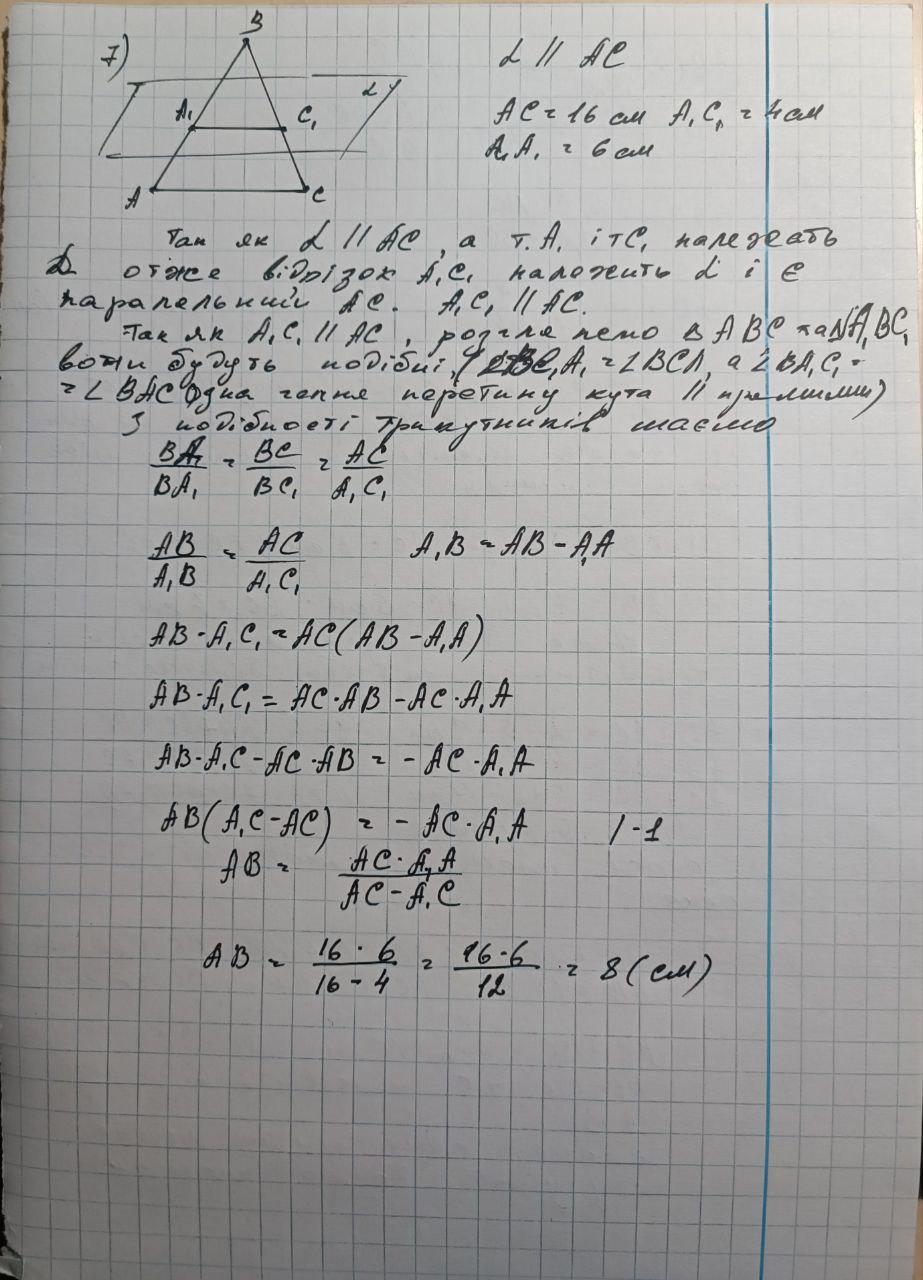 7)
B
α
A₁
C₁
A
C
α || AC
AC = 16 см A₁C₁ = 4 см
A₁A₁ = 6 см
Так як α || AC, а т. A₁ і т C₁ належать
α отже відрізок A₁C₁ належить α і є
паралельний AC. A₁C₁ || AC.
Так як A₁C₁ || AC, розглянемо △ ABC та △A₁BC₁
вони будуть подібні, (∠BC₁A₁ = ∠BCA, а ∠BA₁C₁ =
= ∠BAC перетину кута || прямими)
З подібності трикутників маємо
BA/BA₁ = BC/BC₁ = AC/A₁C₁
AB/A₁B = AC/A₁C₁ A₁B = AB - A₁A
AB · A₁C₁ = AC(AB - A₁A)
AB · A₁C₁ = AC · AB - AC · A₁A
AB · A₁C - AC · AB = - AC · A₁A
AB(A₁C - AC) = - AC · A₁A / · -1
AB = AC · A₁A / AC - A₁C
AB = 16 · 6 / 16 - 4 = 16 · 6 / 12 = 8 (см)